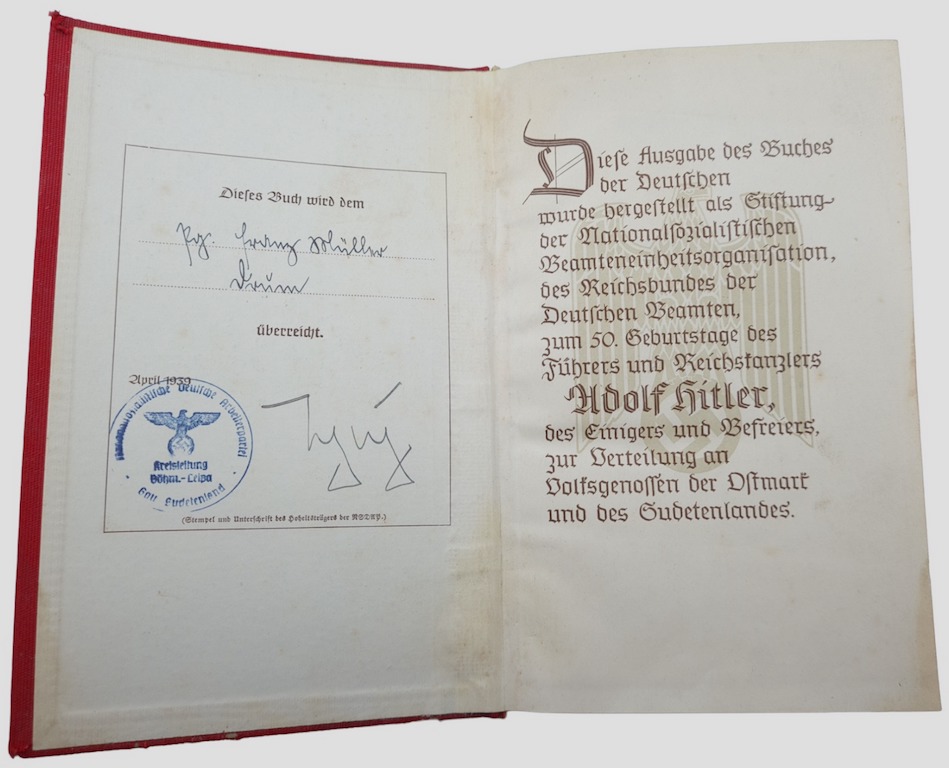 Dieses Buch wird dem
Pg. Franz Müller
Drum
überreicht.
April 1939
Nationalsozialistische Deutsche Arbeiterpartei
Kreisleitung
Böhm.-Leipa
Gau Sudetenland
(Stempel und Unterschrift des Hoheitsträgers der NSDAP.)
Diese Ausgabe des Buches
der Deutschen
wurde hergestellt als Stiftung
der Nationalsozialistischen
Beamteneinheitsorganisation,
des Reichsbundes der
Deutschen Beamten,
zum 50. Geburtstage des
Führers und Reichskanzlers
Adolf Hitler,
des Einigers und Befreiers,
zur Verteilung an
Volksgenossen der Ostmark
und des Sudetenlandes.